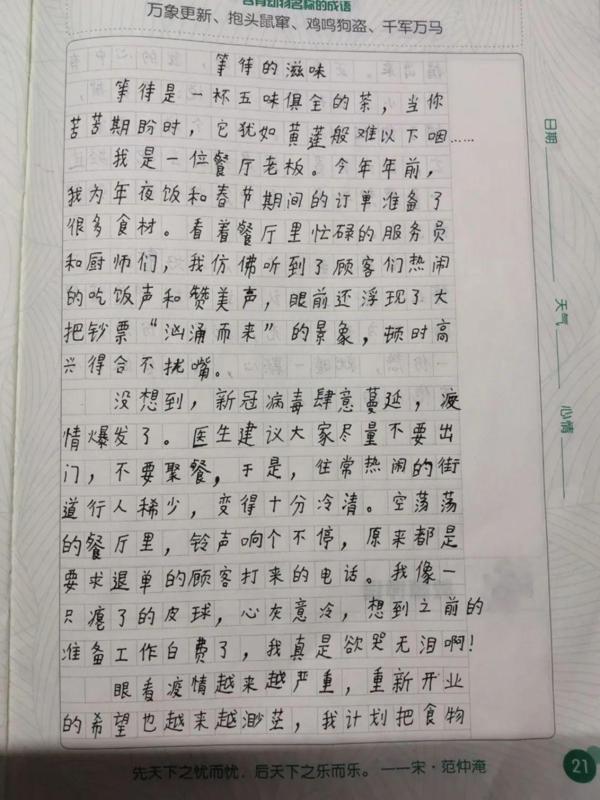 含有动物名称的成语
万象更新、抱头鼠窜、鸡鸣狗盗、千军万马
等待的滋味
等待是一杯五味俱全的茶，当你
苦苦期盼时，它犹如黄莲般难以下咽……
我是一位餐厅老板。今年年前，
我为年夜饭和春节期间的订单准备了
很多食材。看着餐厅里忙碌的服务员
和厨师们，我仿佛听到了顾客们热闹
的吃饭声和赞美声，眼前还浮现了大
把钞票“汹涌而来”的景象，顿时高
兴得合不拢嘴。
没想到，新冠病毒肆意蔓延，疫
情爆发了。医生建议大家尽量不要出
门，不要聚餐，于是，往常热闹的街
道行人稀少，变得十分冷清。空荡荡
的餐厅里，铃声响个不停，原来都是
要求退单的顾客打来的电话。我像一
只瘪了的皮球，心灰意冷，想到之前的
准备工作白费了，我真是欲哭无泪啊！
眼看疫情越来越严重，重新开业
的希望也越来越渺茫，我计划把食物
日期
天气
心情
先天下之忧而忧，后天下之乐而乐。——宋·范仲淹
21